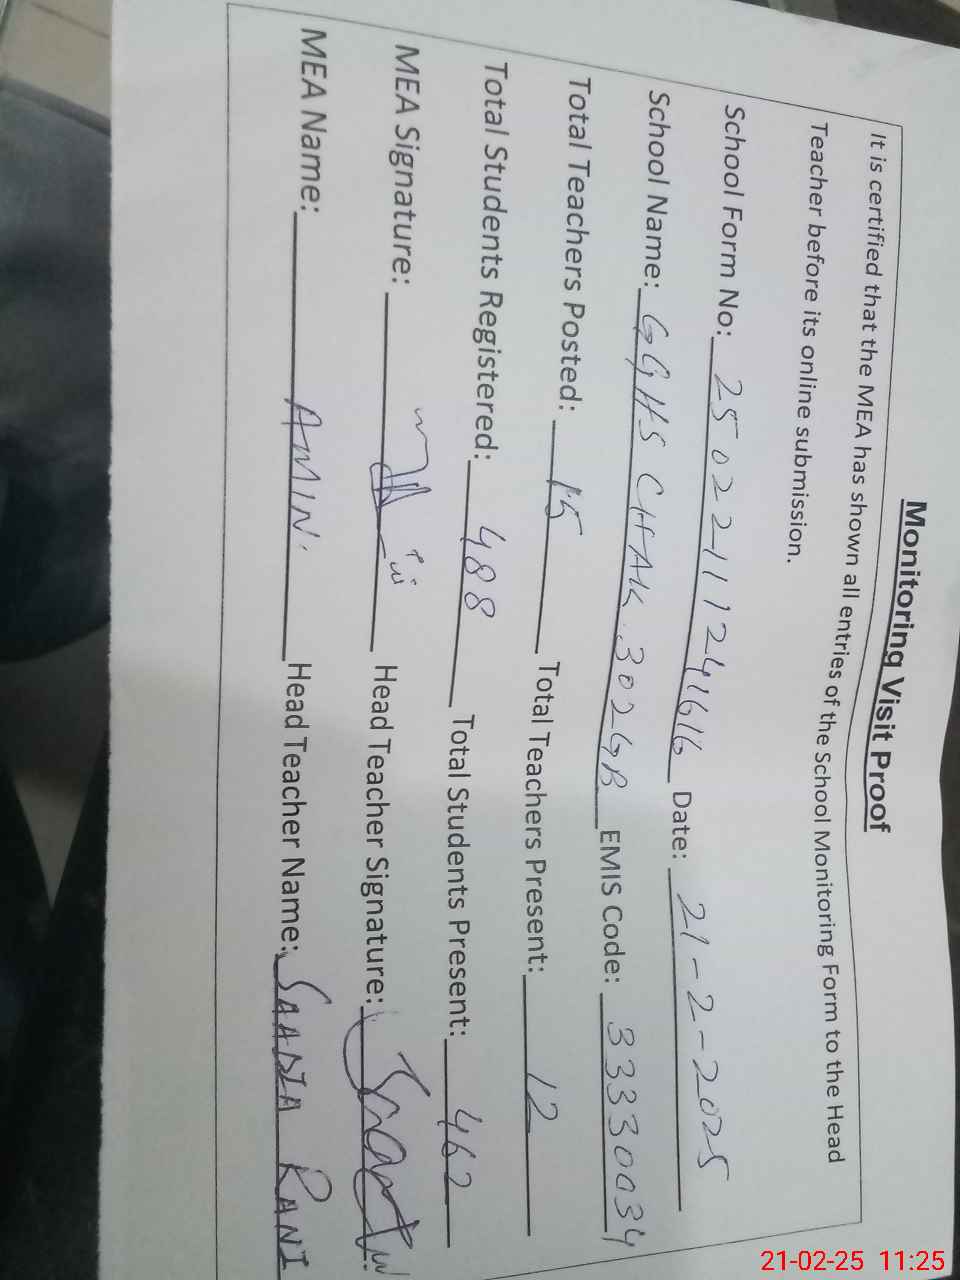 Monitoring Visit Proof
It is certified that the MEA has shown all entries of the School Monitoring Form to the Head
Teacher before its online submission.
School Form No: 25022111241616 Date: 21-2-2025
School Name: GGHS CHAK 302GB EMIS Code: 33330034
Total Teachers Posted: 15 Total Teachers Present: 12
Total Students Registered: 488 Total Students Present: 462
MEA Signature: Head Teacher Signature:
MEA Name: AMIN. Head Teacher Name: SAADIA RANI
21-02-25 11:25